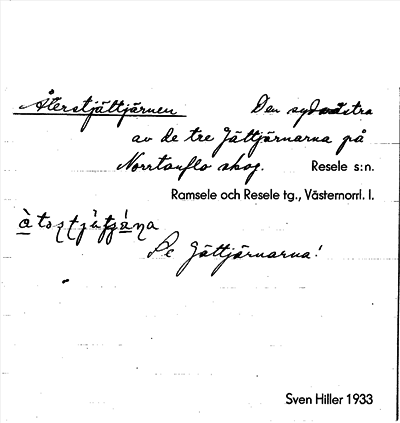 Återstjättjärnen Den sydvästra
av de tre Jättjärnarna på
Norrtanflo skog. Resele s:n.
Ramsele och Resele tg., Västernorrl. l.
Se Jättjärnarna!
Sven Hiller 1933